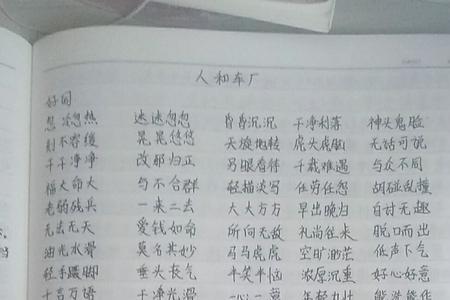 人和车厂
好词
忽冷忽热 迷迷忽忽 昏昏沉沉 干净利落 神头鬼脸
刻不容缓 晃晃悠悠 天旋地转 虎头虎脑 无话可说
干干净净 改邪归正 另眼看待 千载难遇 与众不同
福大命大 与不合群 轻描淡写 任劳任怨 胡碰乱撞
老弱残兵 一来二去 大大方方 早出晚归 自讨无趣
无法无天 爱钱如命 所向无敌 礼尚往来 脱口而出
油光水滑 莫名其妙 马马虎虎 空旷渺茫 低声下气
轻手蹑脚 垂头长气 半笑半恼 浓厚沉重 好心好意
千言万语 干净光滑 心心一意 年轻力壮 能说能作